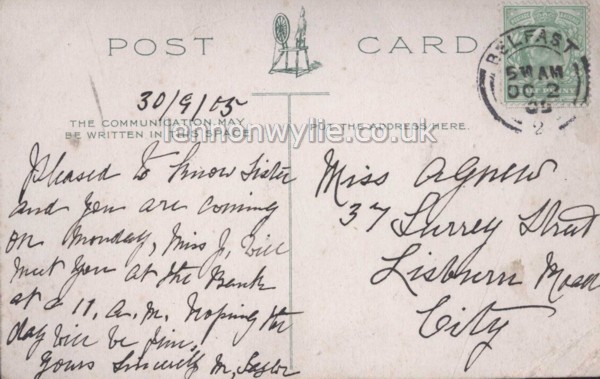 POST CARD
BELFAST
5 AM
OC 2
05
2
30/9/05
THE COMMUNICATION MAY
BE WRITTEN IN THIS SPACE
FOR THE ADDRESS HERE.
lennonwylie.co.uk
Pleased to know Sister
and you are coming
on Monday, Miss J, will
meet you at the Bank
at 11. a.m. Hoping the
day will be fine.
Yours Sincerely M,
Miss Agnew
37 Surrey Street
Lisburn Road
City